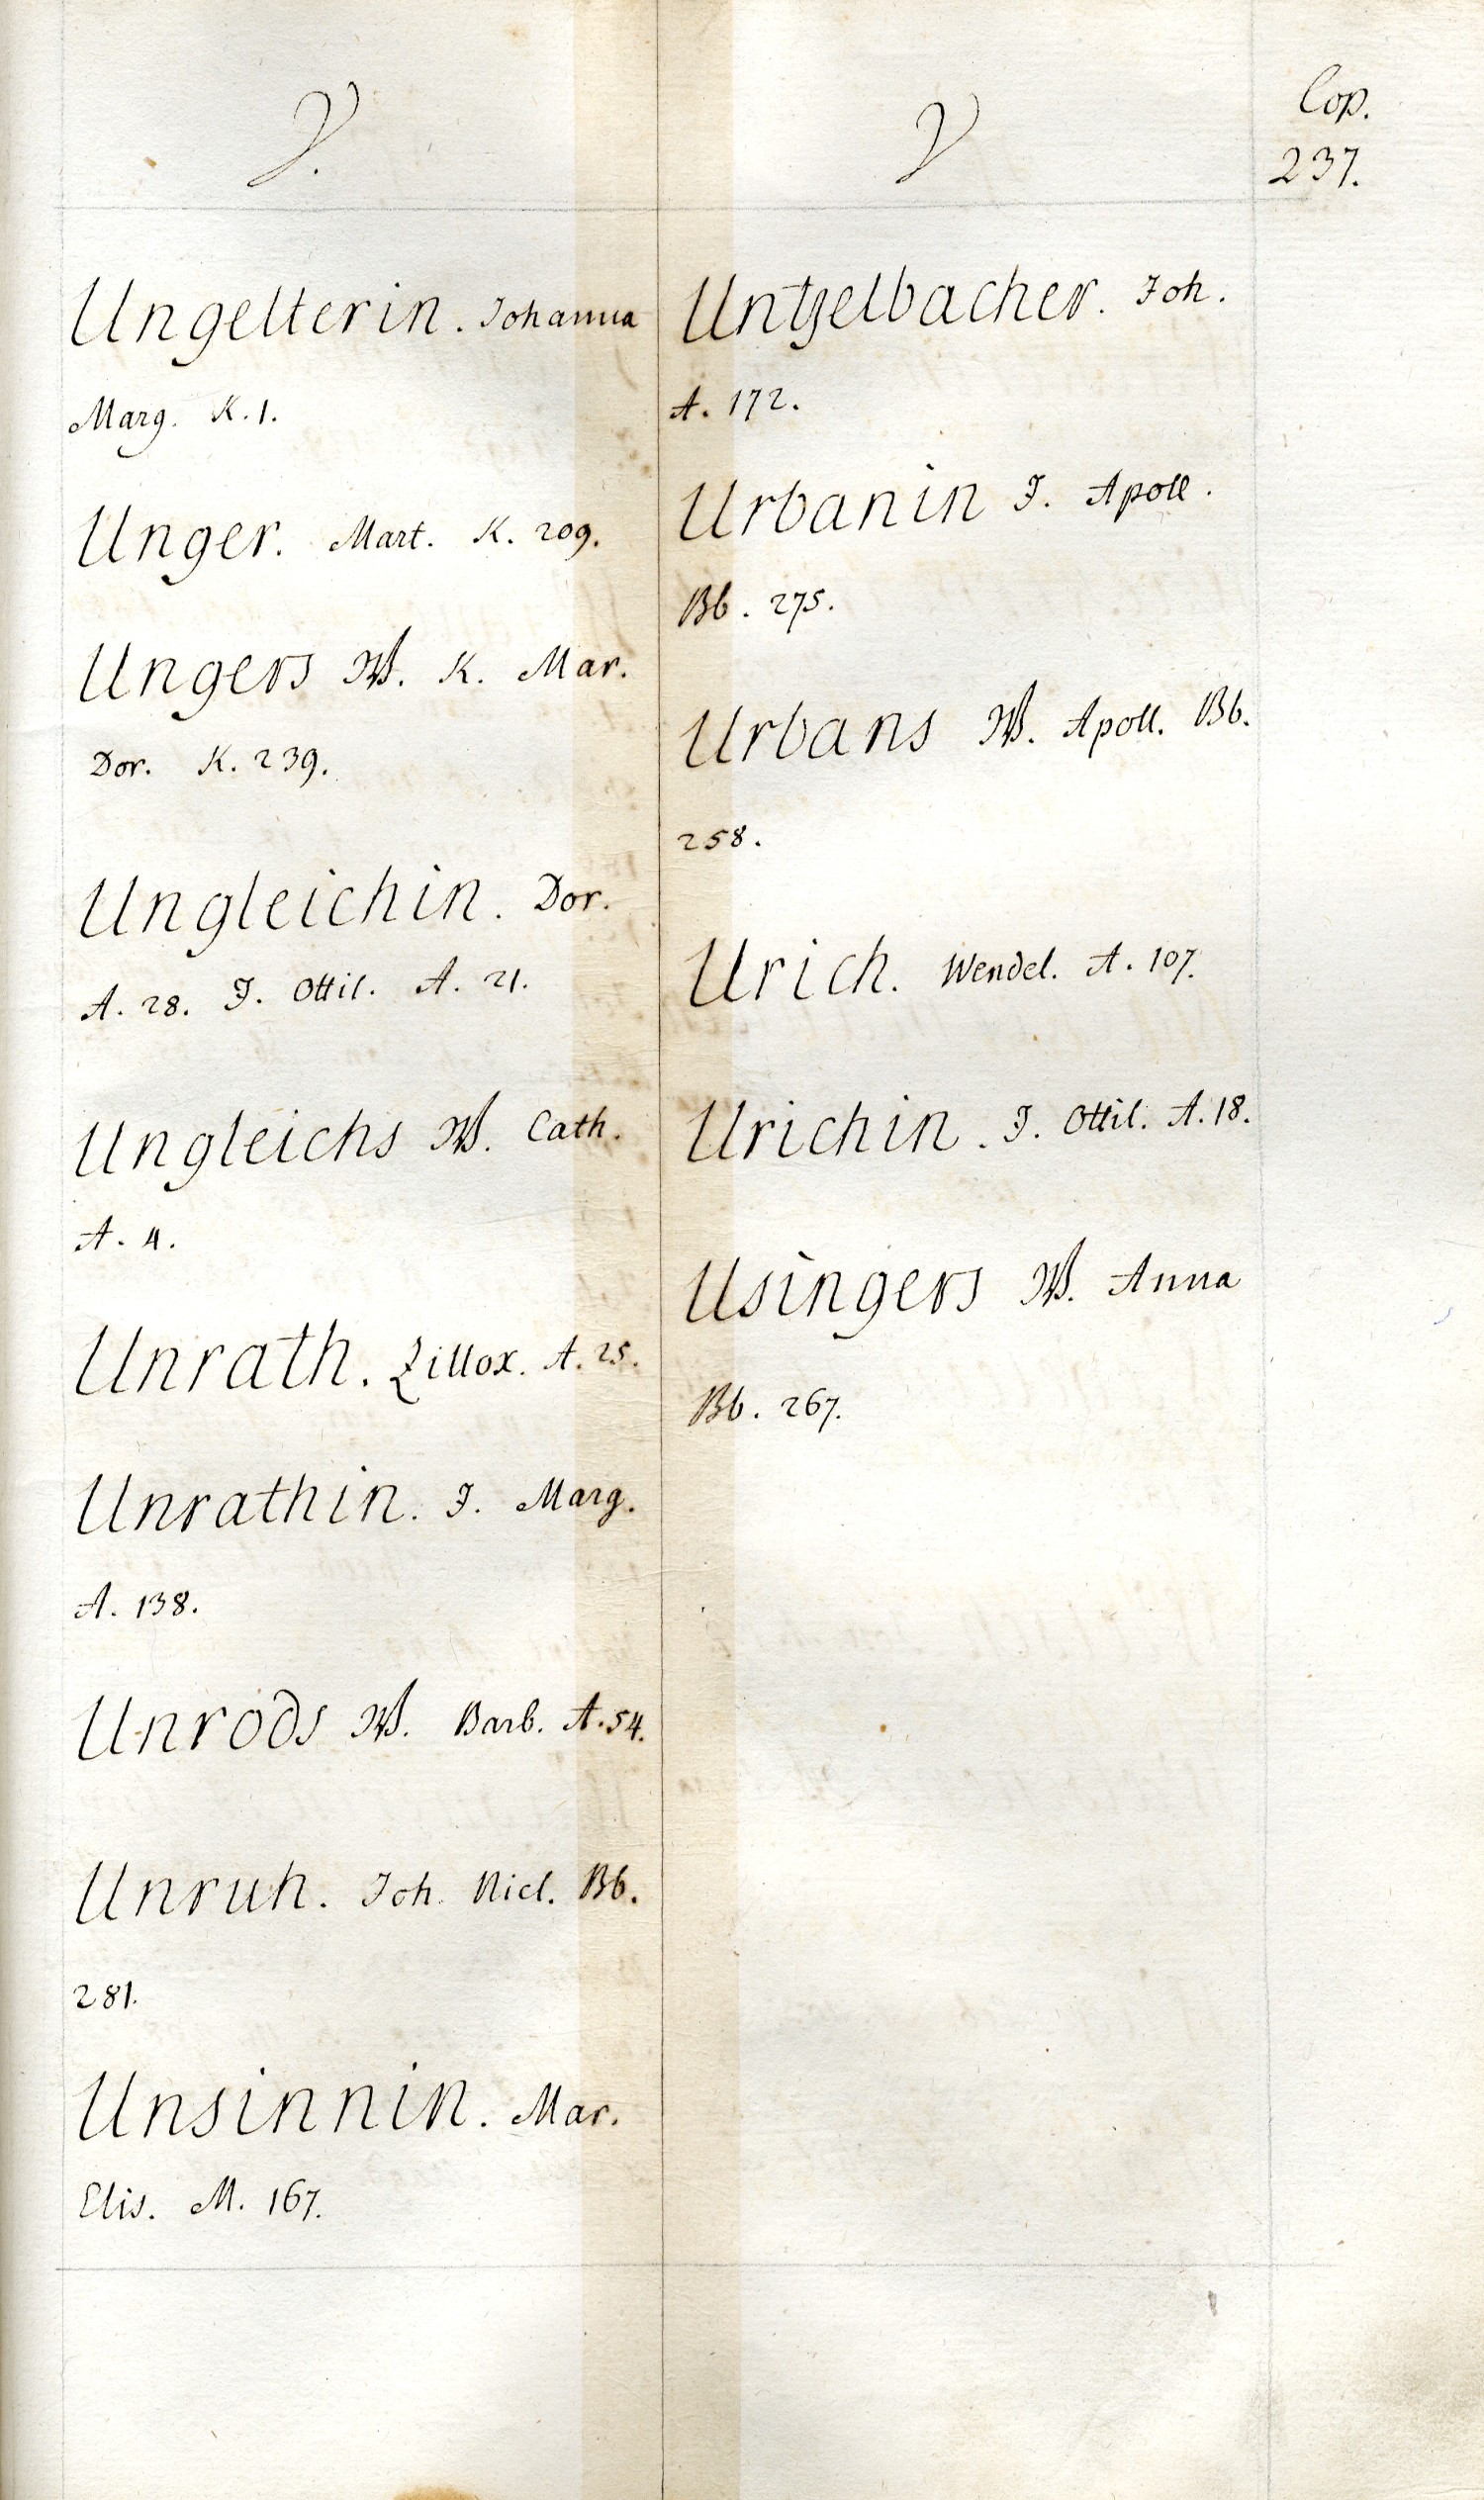 V.
Ungelterin. Johanna
Marg. K. 1.
Unger. Mart. K. 209.
Ungers W. K. Mar.
Dor. K. 239.
Ungleichin. Dor.
A. 28. J. Ottil. A. 21.
Ungleichs W. Cath.
A. 4.
Unrath. Zillox. A. 25.
Unrathin. J. Marg.
A. 138.
Unrods W. Barb. A. 54.
Unruh. Joh. Nicl. Bb.
281.
Unsinnin. Mar.
Elis. M. 167.
V
Untzelbacher. Joh.
A. 172.
Urbanin J. Apoll.
Bb. 275.
Urbans W. Apoll. Bb.
258.
Urich. Wendel. A. 107.
Urichin. J. Ottil. A. 18.
Usingers W. Anna
Bb. 267.
Cop.
237.